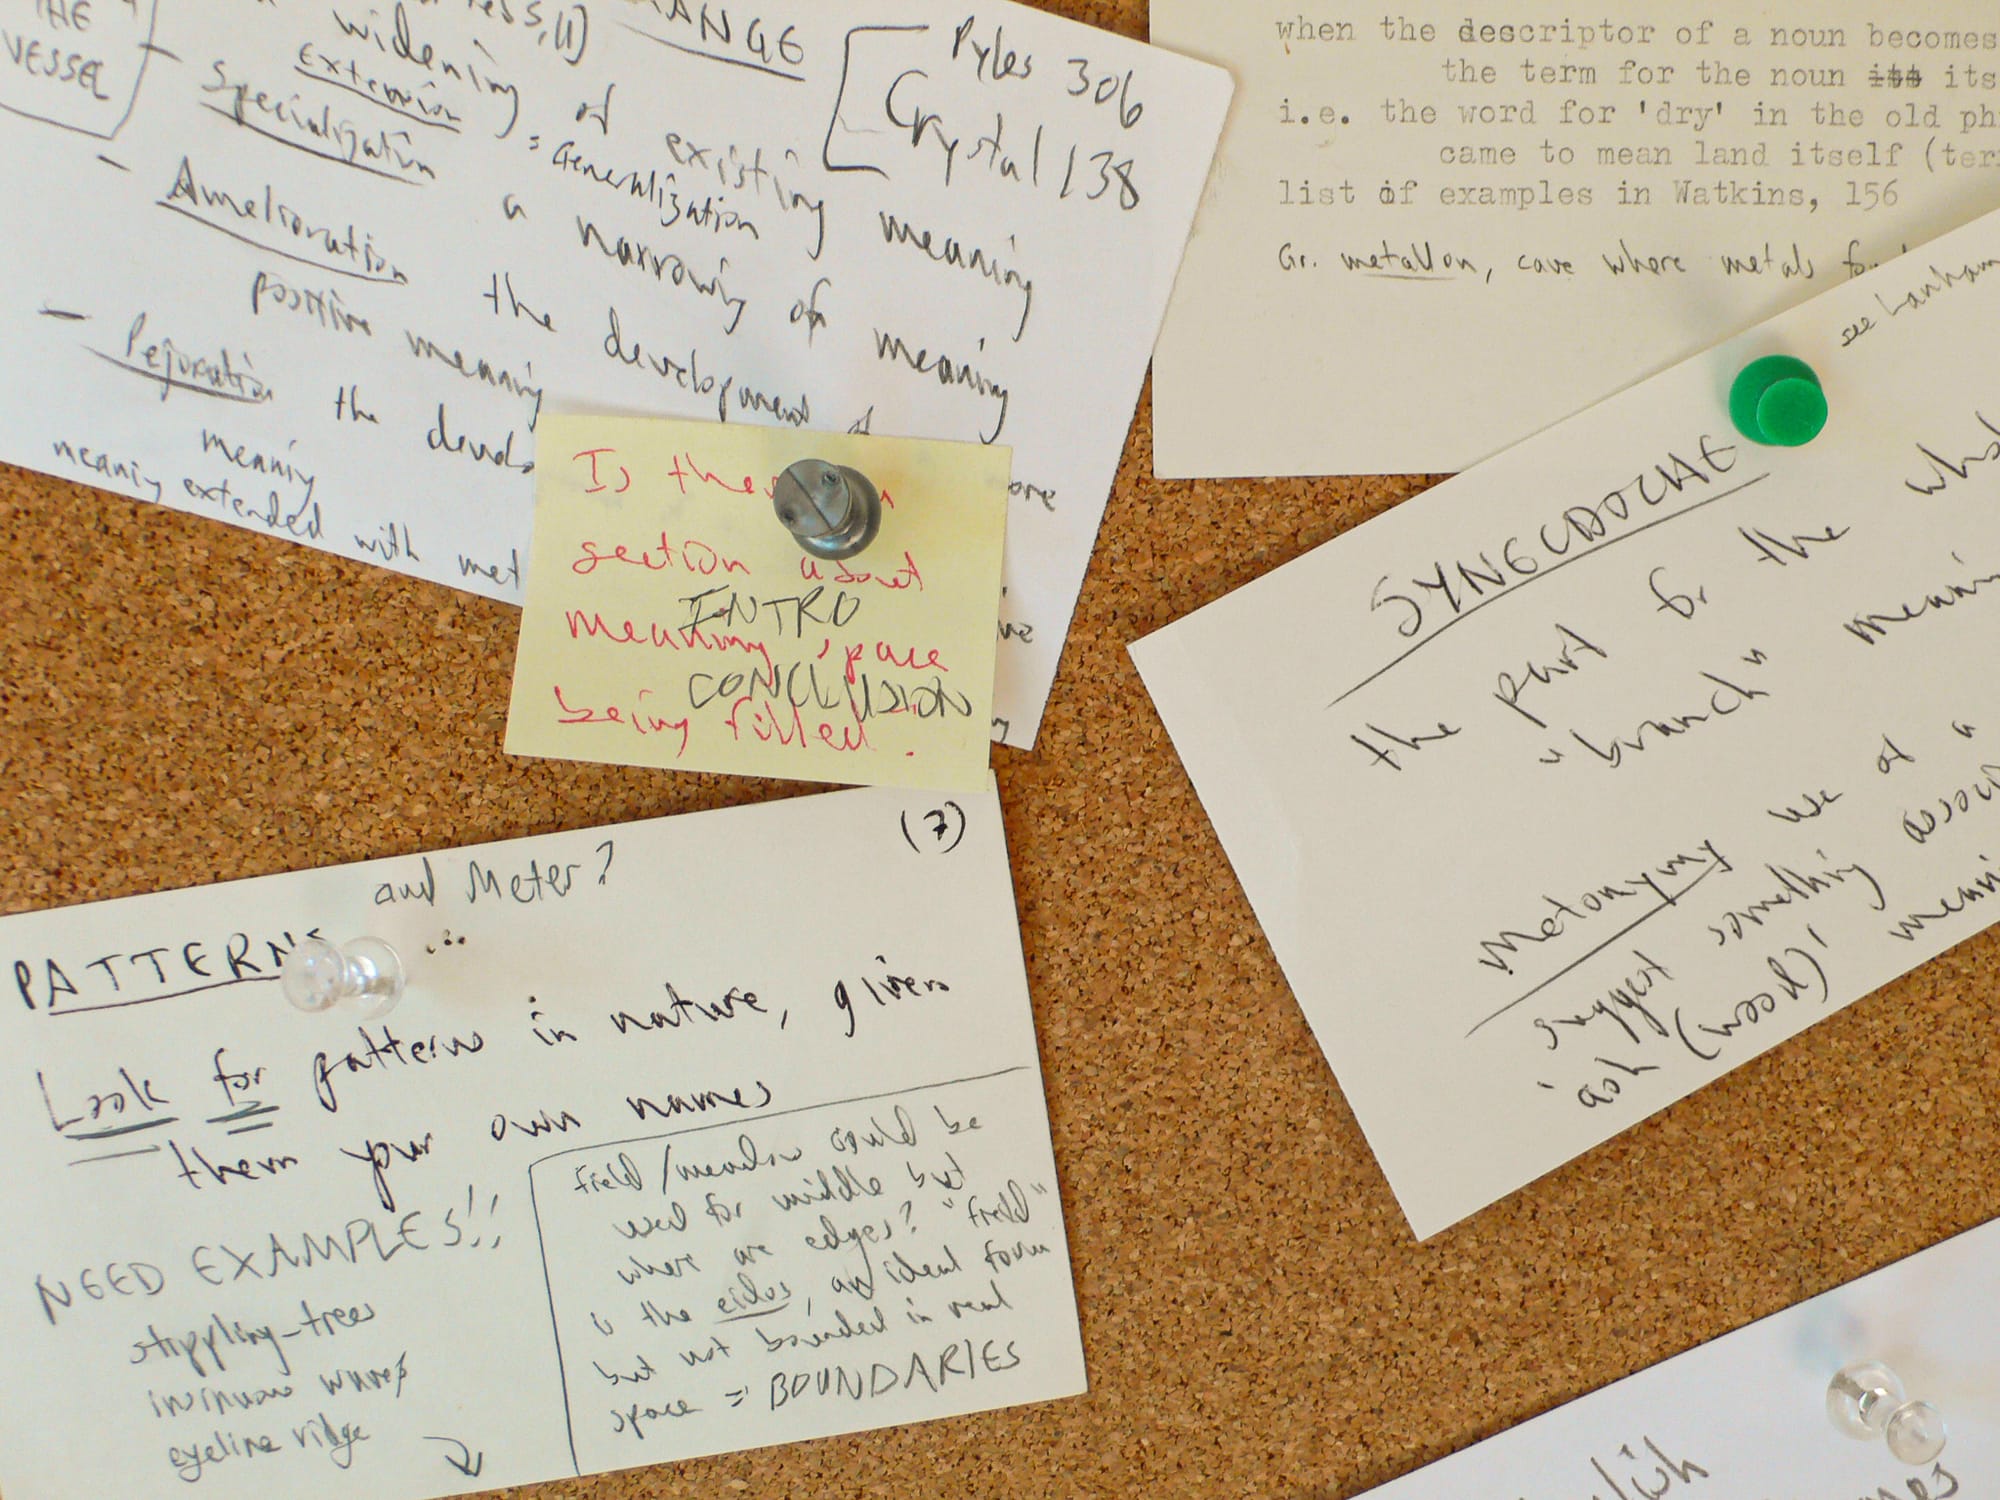 THE
VESSEL
widening of existing meaning
Extension
= Generalization
Specialization a narrowing of meaning
- Amelioration the development of
positive meaning
- Pejoration the
meaning
meaning extended with met
Pyles 306
Crystal 138
when the descriptor of a noun becomes
the term for the noun its its
i.e. the word for 'dry' in the old ph
came to mean land itself (ter
list of examples in Watkins, 156
Gr. metallon, cave where metals fo
see Lanham
SYNECDOCHE
the part for the who
"branch" meanin
Metonymy use of a
suggest something assoc
ash (weapon), meani
Is
section about
meaning space
being filled.
INTRO
CONCLUSION
(7)
and Meter?
PATTERNS ...
Look for patterns in nature, given
them your own names
NEED EXAMPLES!!
stippling-trees
eyeline ridge
field/meadow could be
used for middle but
where are edges? "field"
is the eidos, an ideal form
but not bounded in real
space = BOUNDARIES